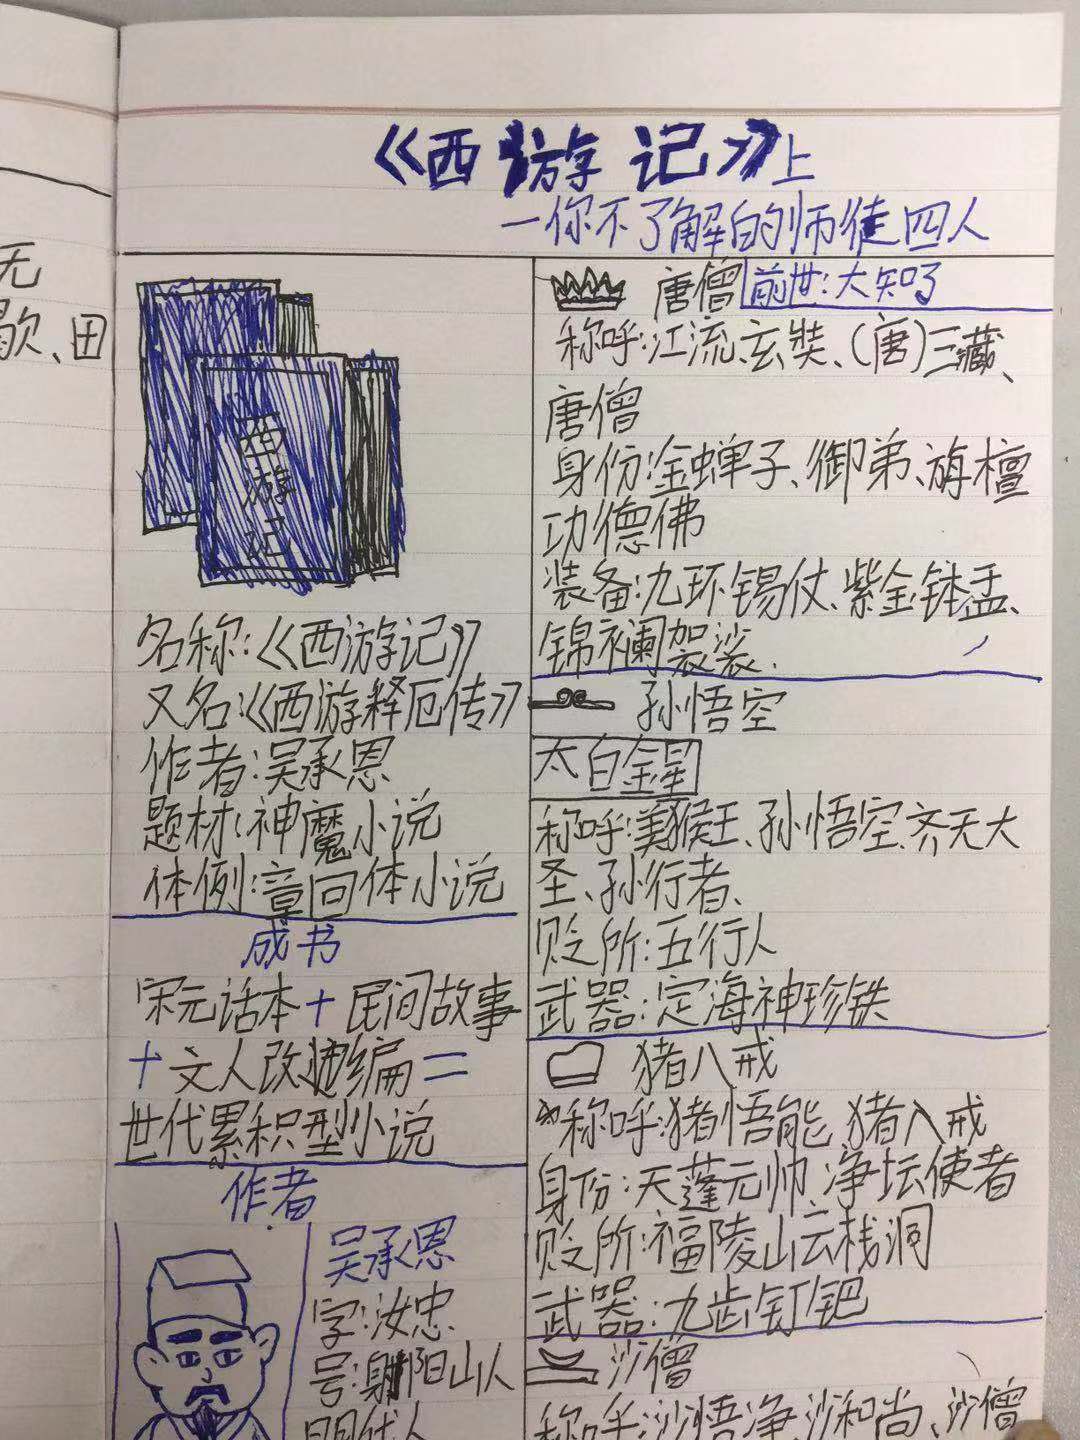 《西游记》上
一你不了解的师徒四人
无
歇、田
西游记
名称:《西游记》
又名:《西游释厄传》
作者:吴承恩
题材:神魔小说
体例:章回体小说
成书
宋元话本+民间故事
+文人改编=
世代累积型小说
作者
吴承恩
字:汝忠
号:射阳山人
明代人
唐僧 前世:大知了
称呼:江流、玄奘、(唐)三藏、
唐僧
身份:金蝉子、御弟、旃檀
功德佛
装备:九环锡仗、紫金钵盂、
锦襕袈裟.
孙悟空
太白金星
称呼:美猴王、孙悟空、齐天大
圣、孙行者、
贬所:五行人
武器:定海神珍铁
猪八戒
称呼:猪悟能 猪八戒
身份:天蓬元帅、净坛使者
贬所:福陵山云栈洞
武器:九齿钉钯
沙僧
称呼:沙悟净、沙和尚、沙僧